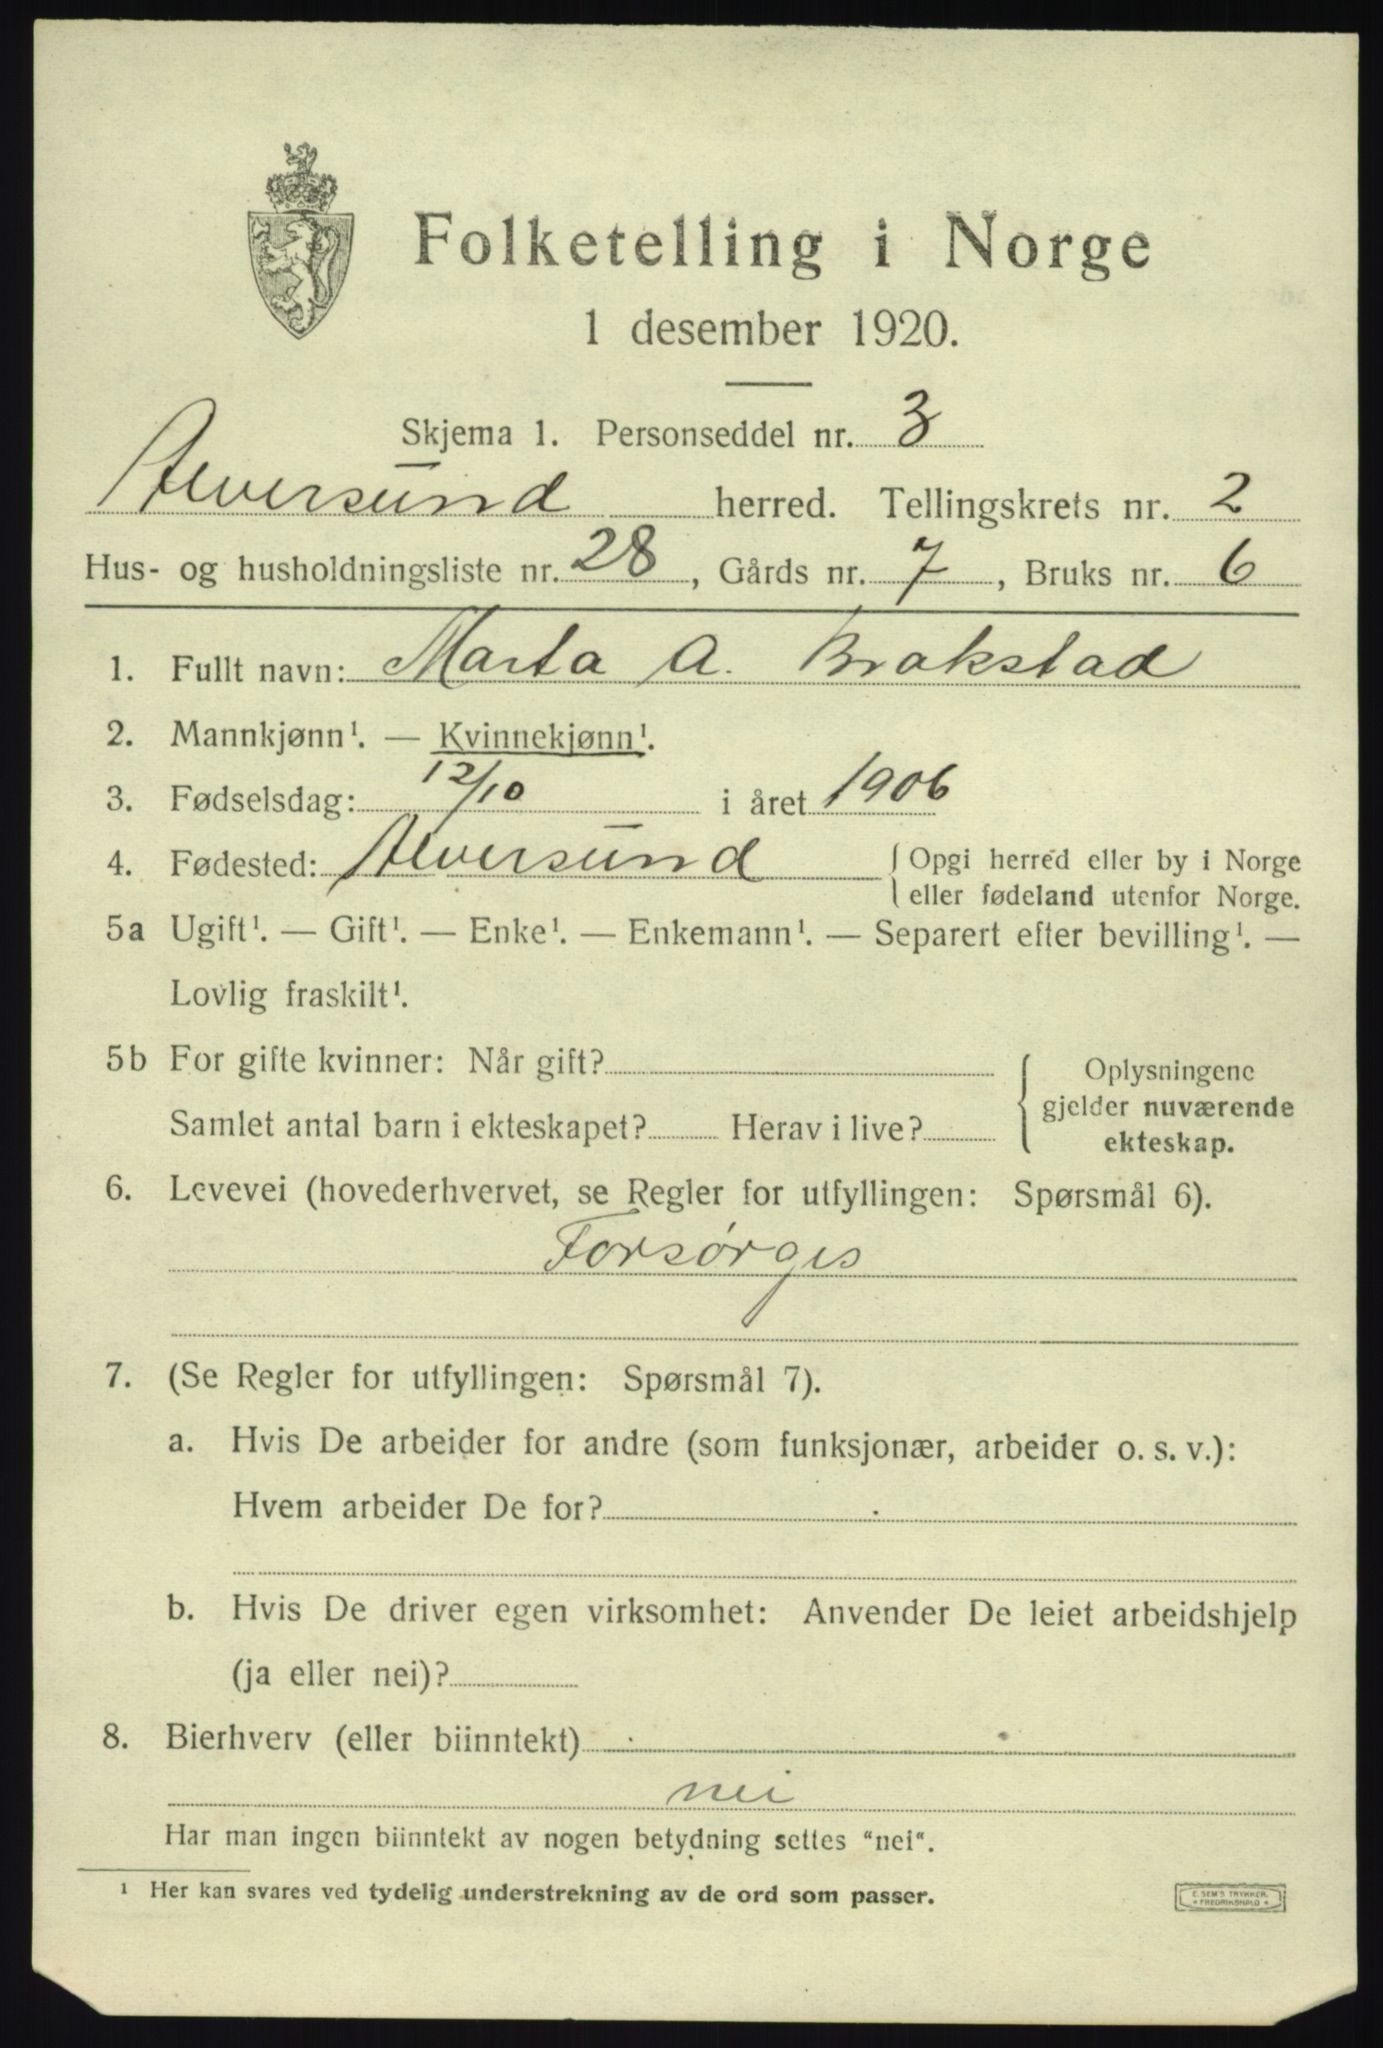 Folketelling i Norge
1 desember 1920.
Skjema 1. Personseddel nr. 3
Alversund herred. Tellingskrets nr. 2
Hus- og husholdningsliste nr. 28, Gårds nr. 7, Bruks nr. 6
1. Fullt navn: Marta A. Brakstad
2. Mannkjønn¹. — Kvinnekjønn¹.
3. Fødselsdag: 12/10 i året 1906
4. Fødested: Alversund { Opgi herred eller by i Norge
eller fødeland utenfor Norge.
5a Ugift¹. — Gift¹. — Enke¹. — Enkemann¹. — Separert efter bevilling¹. —
Lovlig fraskilt¹.
5b For gifte kvinner: Når gift? { Oplysningene
gjelder nuværende
Samlet antal barn i ekteskapet? Herav i live? ekteskap.
6. Levevei (hovederhvervet, se Regler for utfyllingen: Spørsmål 6).
Forsørges
7. (Se Regler for utfyllingen: Spørsmål 7).
a. Hvis De arbeider for andre (som funksjonær, arbeider o. s. v.):
Hvem arbeider De for?
b. Hvis De driver egen virksomhet: Anvender De leiet arbeidshjelp
(ja eller nei)?
8. Bierhverv (eller biinntekt)
nei
Har man ingen biinntekt av nogen betydning settes "nei".
¹ Her kan svares ved tydelig understrekning av de ord som passer.
E. SEM'S TRYKKER.
FREDRIKSHALD